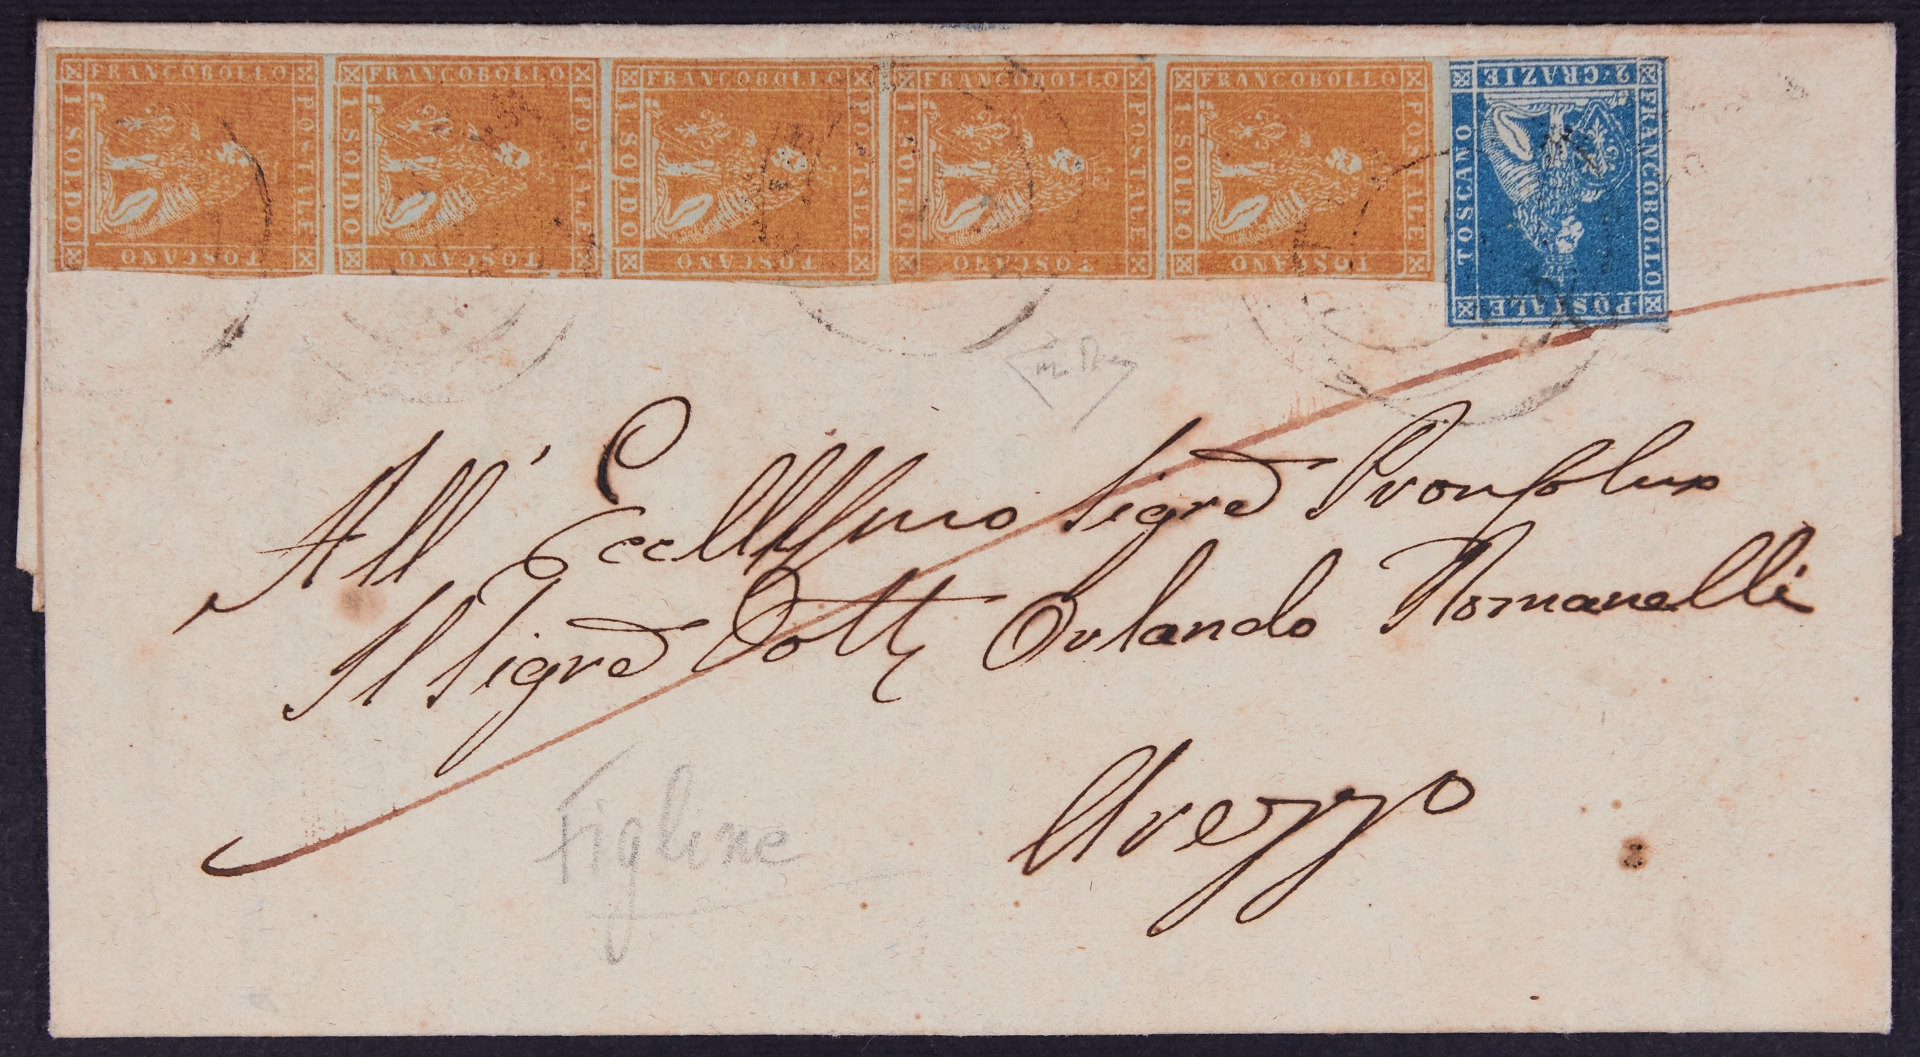 FRANCOBOLLO POSTALE TOSCANO 1 SOLDO
FRANCOBOLLO POSTALE TOSCANO 1 SOLDO
FRANCOBOLLO POSTALE TOSCANO 1 SOLDO
FRANCOBOLLO POSTALE TOSCANO 1 SOLDO
FRANCOBOLLO POSTALE TOSCANO 1 SOLDO
FRANCOBOLLO POSTALE TOSCANO 2 CRAZIE
All' Eccellmo Sigre
Il Sigre Dott Orlando Romanelli
Arezzo
Figline